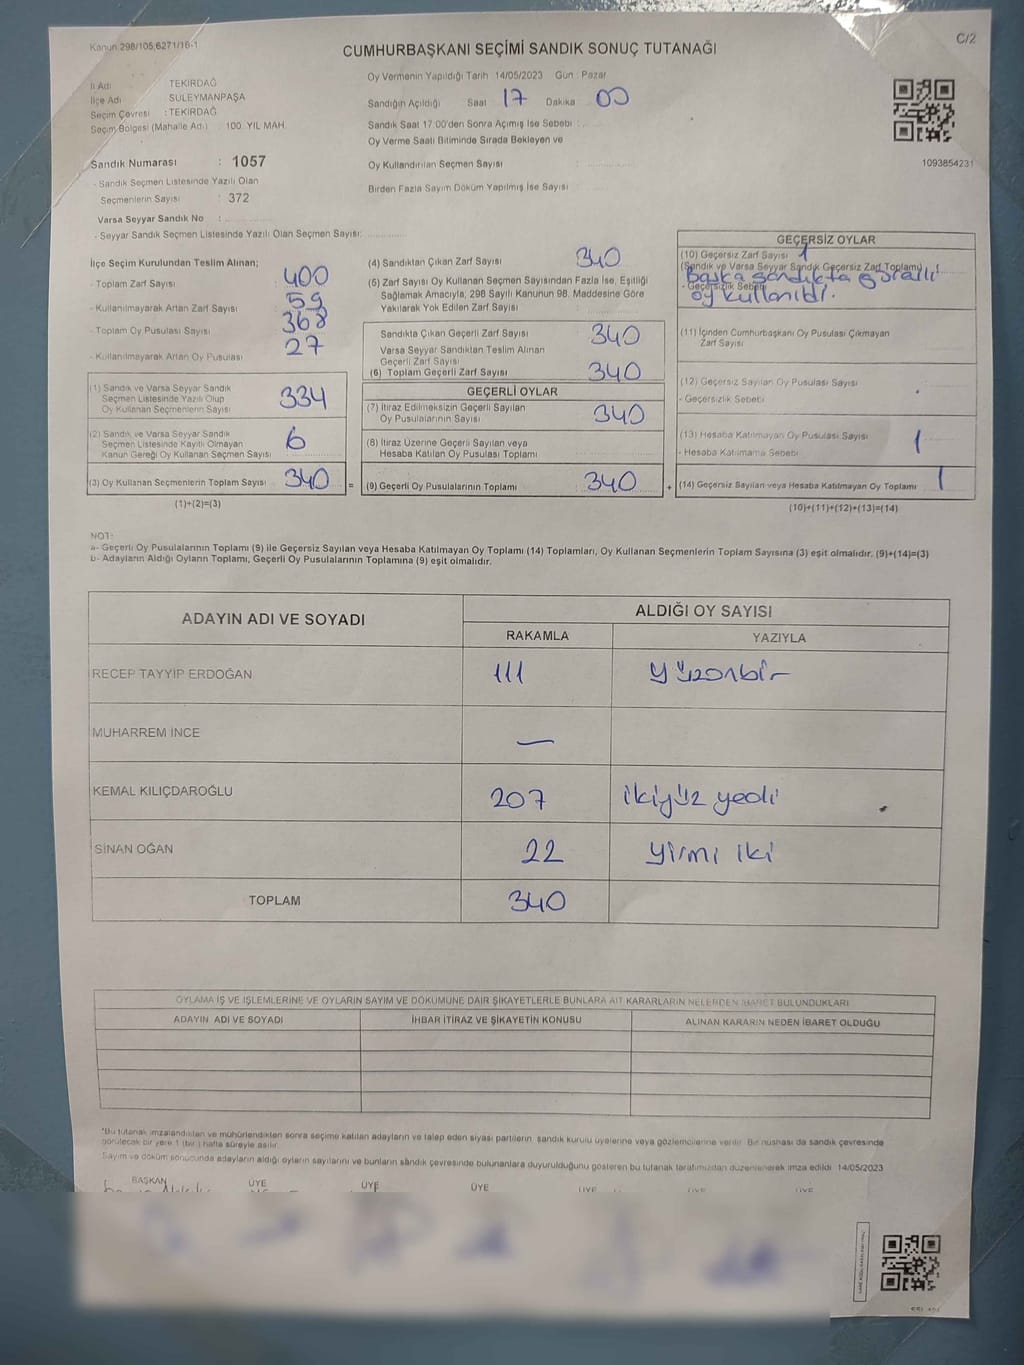 Kanun 298/105,6271/16-1
C/2
CUMHURBAŞKANI SEÇİMİ SANDIK SONUÇ TUTANAĞI
İl Adı : TEKİRDAĞ
İlçe Adı : SÜLEYMANPAŞA
Seçim Çevresi : TEKİRDAĞ
Seçim Bölgesi (Mahalle Adı) : 100. YIL MAH.
Sandık Numarası : 1057
- Sandık Seçmen Listesinde Yazılı Olan
Seçmenlerin Sayısı : 372
Varsa Seyyar Sandık No :
- Seyyar Sandık Seçmen Listesinde Yazılı Olan Seçmen Sayısı:
Oy Vermenin Yapıldığı Tarih 14/05/2023 Gün : Pazar
Sandığın Açıldığı Saat 17 Dakika 00
Sandık Saat 17.00'den Sonra Açımış İse Sebebi :
Oy Verme Saati Bitiminde Sırada Bekleyen ve
Oy Kullandırılan Seçmen Sayısı :
Birden Fazla Sayım Döküm Yapılmış İse Sayısı
1093854231
İlçe Seçim Kurulundan Teslim Alınan;
- Toplam Zarf Sayısı : 400
- Kullanılmayarak Artan Zarf Sayısı : 59
- Toplam Oy Pusulası Sayısı : 368
- Kullanılmayarak Artan Oy Pusulası : 27
(1) Sandık ve Varsa Seyyar Sandık
Seçmen Listesinde Yazılı Olup
Oy Kullanan Seçmenlerin Sayısı : 334
(2) Sandık ve Varsa Seyyar Sandık
Seçmen Listesinde Kayıtlı Olmayan
Kanun Gereği Oy Kullanan Seçmen Sayısı : 6
(3) Oy Kullanan Seçmenlerin Toplam Sayısı : 340 =
(1)+(2)=(3)
(4) Sandıktan Çıkan Zarf Sayısı : 340
(5) Zarf Sayısı Oy Kullanan Seçmen Sayısından Fazla İse, Eşitliği
Sağlamak Amacıyla, 298 Sayılı Kanunun 98. Maddesine Göre
Yakılarak Yok Edilen Zarf Sayısı :
Sandıkta Çıkan Geçerli Zarf Sayısı : 340
Varsa Seyyar Sandıktan Teslim Alınan
Geçerli Zarf Sayısı :
(6) Toplam Geçerli Zarf Sayısı : 340
GEÇERLİ OYLAR
(7) İtiraz Edilmeksizin Geçerli Sayılan
Oy Pusulalarının Sayısı : 340
(8) İtiraz Üzerine Geçerli Sayılan veya
Hesaba Katılan Oy Pusulası Toplamı :
(9) Geçerli Oy Pusulalarının Toplamı : 340 +
GEÇERSİZ OYLAR
(10) Geçersiz Zarf Sayısı 1
(Sandık ve Varsa Seyyar Sandık Geçersiz Zarf Toplamı) :
- Geçersizlik Sebebi
Başka sandıkta görevli
oy kullanıldı.
(11) İçinden Cumhurbaşkanı Oy Pusulası Çıkmayan
Zarf Sayısı
(12) Geçersiz Sayılan Oy Pusulası Sayısı :
- Geçersizlik Sebebi
(13) Hesaba Katılmayan Oy Pusulası Sayısı : 1
- Hesaba Katılmama Sebebi
(14) Geçersiz Sayılan veya Hesaba Katılmayan Oy Toplamı : 1
(10)+(11)+(12)+(13)=(14)
NOT:
a- Geçerli Oy Pusulalarının Toplamı (9) ile Geçersiz Sayılan veya Hesaba Katılmayan Oy Toplamı (14) Toplamları, Oy Kullanan Seçmenlerin Toplam Sayısına (3) eşit olmalıdır. (9)+(14)=(3)
b- Adayların Aldığı Oyların Toplamı, Geçerli Oy Pusulalarının Toplamına (9) eşit olmalıdır.
ADAYIN ADI VE SOYADI ALDIĞI OY SAYISI
RAKAMLA YAZIYLA
RECEP TAYYİP ERDOĞAN 111 yüzonbir
MUHARREM İNCE —
KEMAL KILIÇDAROĞLU 207 ikiyüz yedi
SİNAN OĞAN 22 yirmi iki
TOPLAM 340
OYLAMA İŞ VE İŞLEMLERİNE VE OYLARIN SAYIM VE DÖKÜMÜNE DAİR ŞİKAYETLERLE BUNLARA AİT KARARLARIN NELERDEN İBARET BULUNDUKLARI
ADAYIN ADI VE SOYADI İHBAR İTİRAZ VE ŞİKAYETİN KONUSU ALINAN KARARIN NEDEN İBARET OLDUĞU
*Bu tutanak imzalandıktan ve mühürlendikten sonra seçime katılan adayların ve talep eden siyasi partilerin sandık kurulu üyelerine veya gözlemcilerine verilir. Bir nüshası da sandık çevresinde
görülecek bir yere 1 (bir) hafta süreyle asılır.
Sayım ve döküm sonucunda adayların aldığı oyların sayılarını ve bunların sandık çevresinde bulunanlara duyurulduğunu gösteren bu tutanak tarafımızdan düzenlenerek imza edildi. 14/05/2023
BAŞKAN ÜYE ÜYE ÜYE ÜYE ÜYE ÜYE